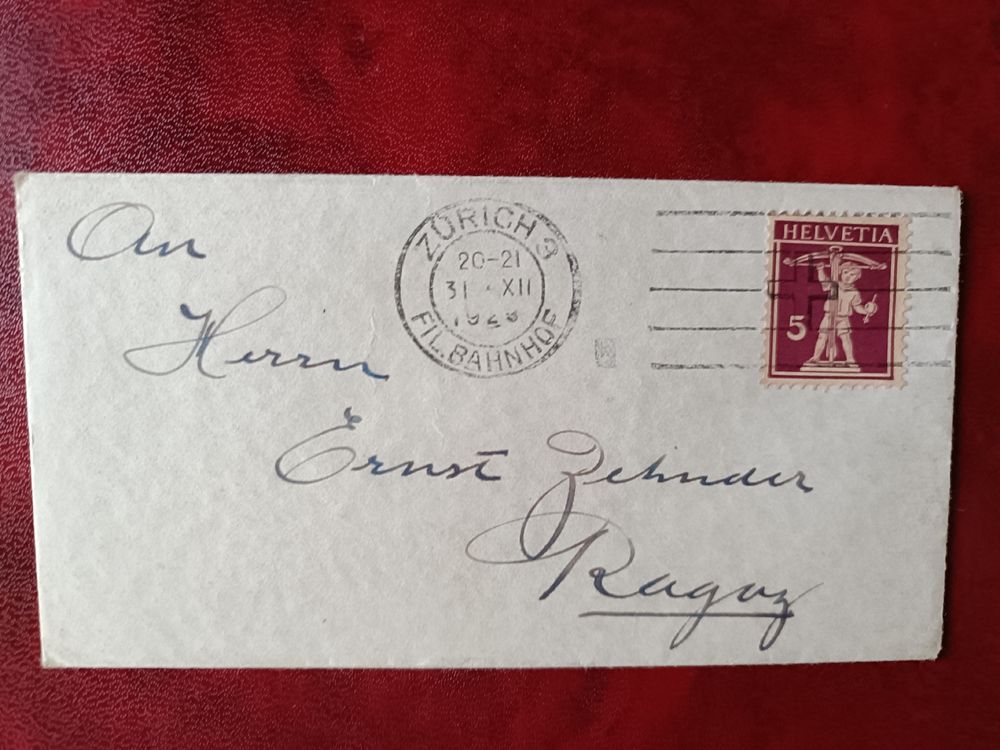 An
Herrn
Ernst Zehnder
Ragaz
ZÜRICH 3
20-21
31 · XII
FIL. BAHNHOF
HELVETIA
5